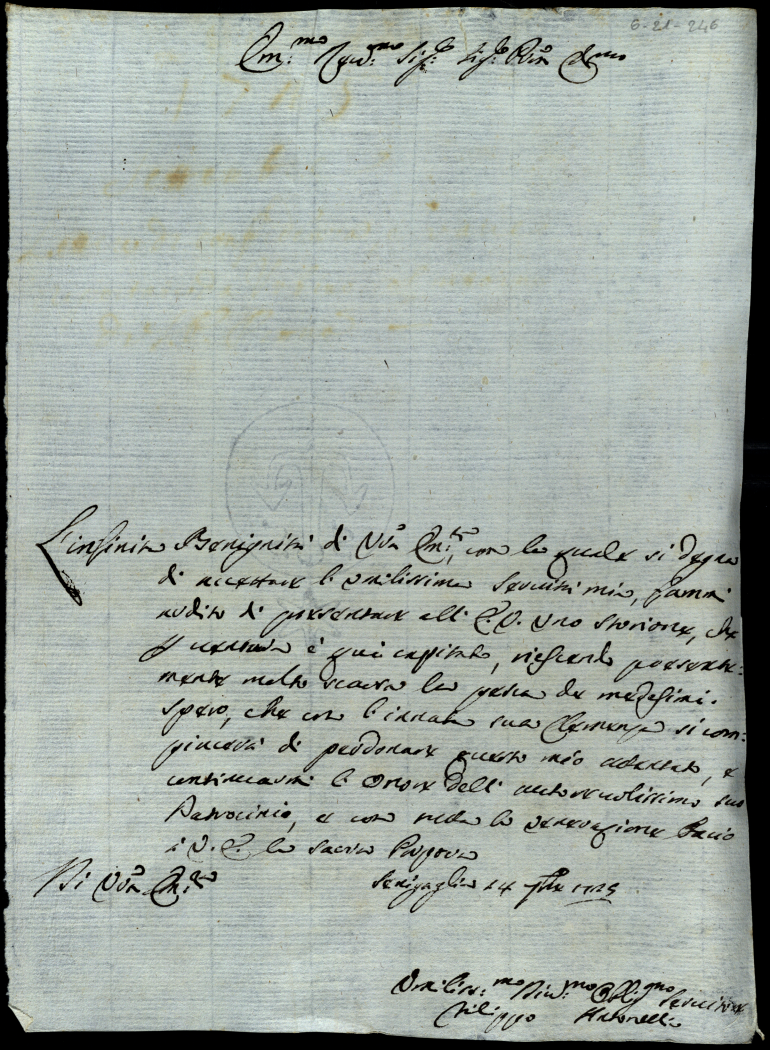 6-21-246
Em:mo Rev:mo Sig:e Sig:e Pñe Col:mo
L'infinita Benignità di Vrã Em:za, con la quale si degna
di accettare l'umilissima servitù mia, fammi
ardito di presentare all'E.V. uno storione, che
ventura è quì capitato, riescendo presente=
mente molto scarsa la pesca de medesimi.
Spero, che con l'innata sua Clemenza si com=
piacerà di perdonare questo mio attentato, e
continuarmi l'onore dell'autorevolissimo suo
Patrocinio, e con tutta la venerazione bacio
à V.E. la sacra Porpora
Di Vrã Em:za
Senigaglia 24 7bre 1725
Umiliss:mo Div:mo Obblig:mo Servitore
Filippo Antonelli